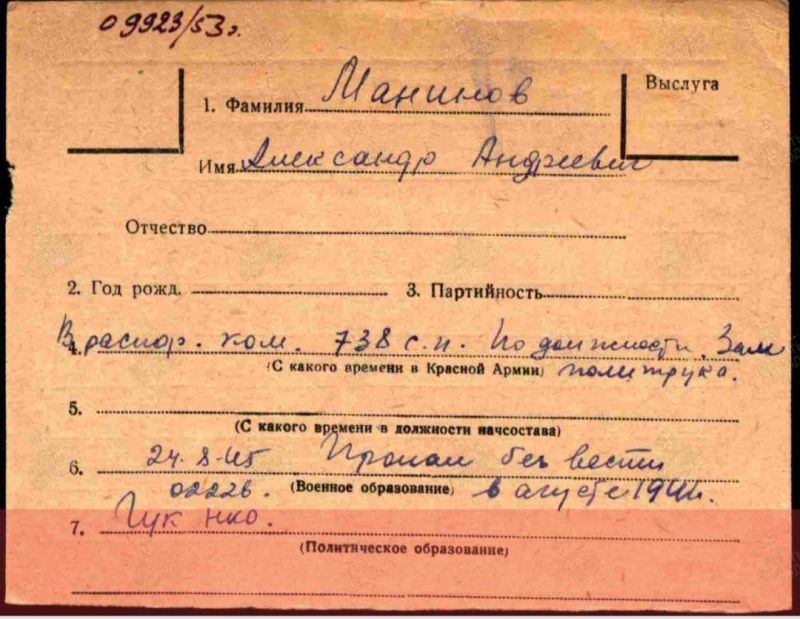 09923/53г.
Выслуга
1. Фамилия Манинов
Имя Александр Андреевич
Отчество
2. Год рожд. 3. Партийность
4. В распор. ком. 738 с.п. По должности Зам
(С какого времени в Красной Армии) политрука.
5.
(С какого времени в должности начсостава)
6. 24.8.45 Пропал без вести
02226. (Военное образование) в августе 1941г.
7. Гук нко.
(Политическое образование)